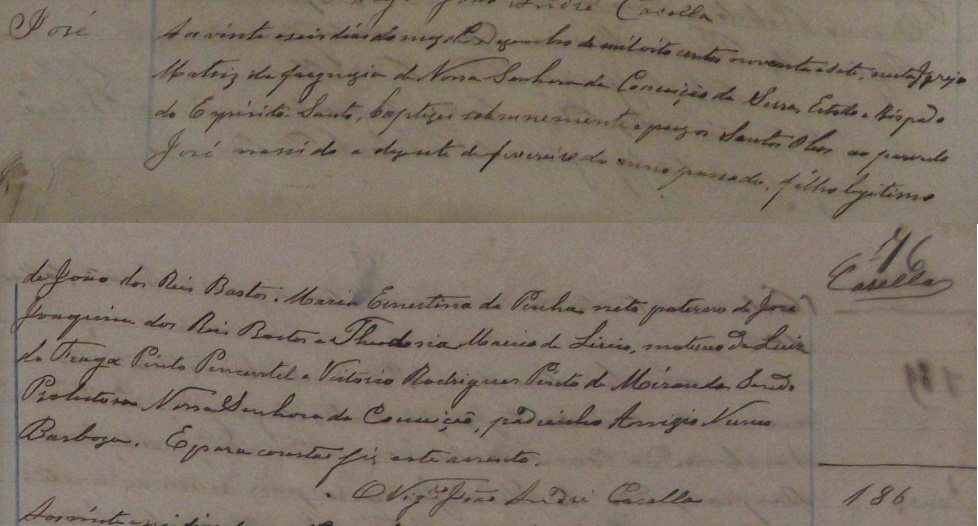 João André Casella
José
Aos vinte e seis dias do mez de Dezembro de mil oito centos noventa e sete, nesta Igreja
Matriz da freguezia de Nossa Senhora da Conceição da Serra, Estado e Bispado
do Espirito-Santo, baptizei solemnemente e puz os Santos Oleos ao parvulo
José nascido a de fevereiro do anno passado, filho legitimo
76
Casella
de João dos Reis Bastos e Maria Ernestina da Penha, neto paterno de José
Joaquim dos Reis Bastos e Theodosia Maria de Lirio, materno de Luiz
da Fraga Pinto Pimentel e Vitoria Rodrigues Pinto de Miranda. Sendo
Protectora Nossa Senhora da Conceição, padrinho Nunes
Barboza. E para constar fiz este assento.
O Vigrº João André Casella
186
Aos vinte e